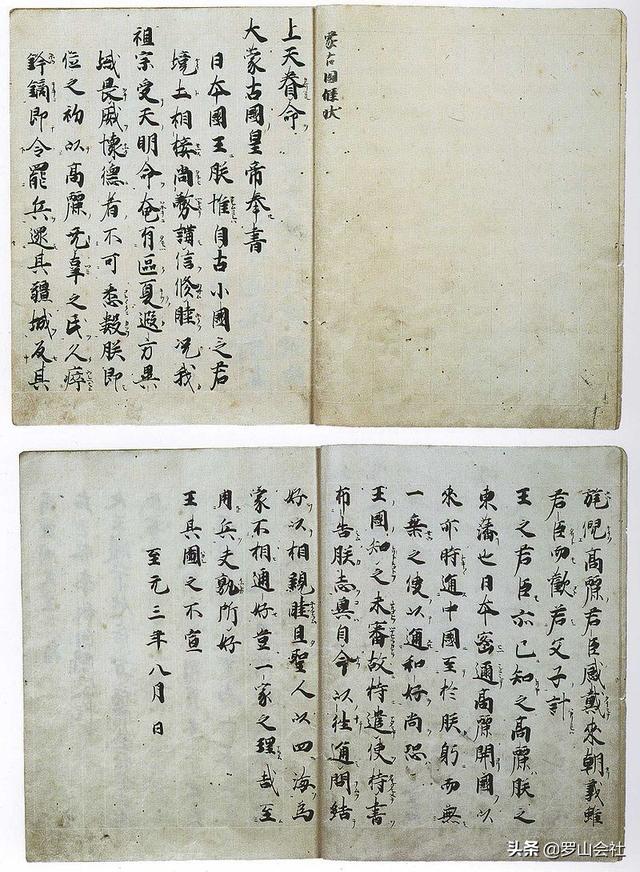 蒙古國牒状
上天眷命
大蒙古國皇帝奉書
日本國王朕惟自古小國之君
境土相接尚務講信修睦况我
祖宗受天明命奄有區夏遐方異
域畏威懐德者不可悉數朕即
位之初以高麗无辜之民久瘁
鋒鏑即令罷兵還其疆域反其
旄倪高麗君臣感戴來朝義雖
君臣而歡若父子計
王之君臣亦已知之高麗朕之
東藩也日本密邇高麗開國以
來亦時通中國至於朕躬而無
一乗之使以通和好尚恐
王國知之未審故特遣使持書
布告朕志冀自今以往通問結
好以相親睦且聖人以四海為
家不相通好豈一家之理哉至
用兵夫孰所好
王其圖之不宣
至元三年八月日
头条 @罗山会社